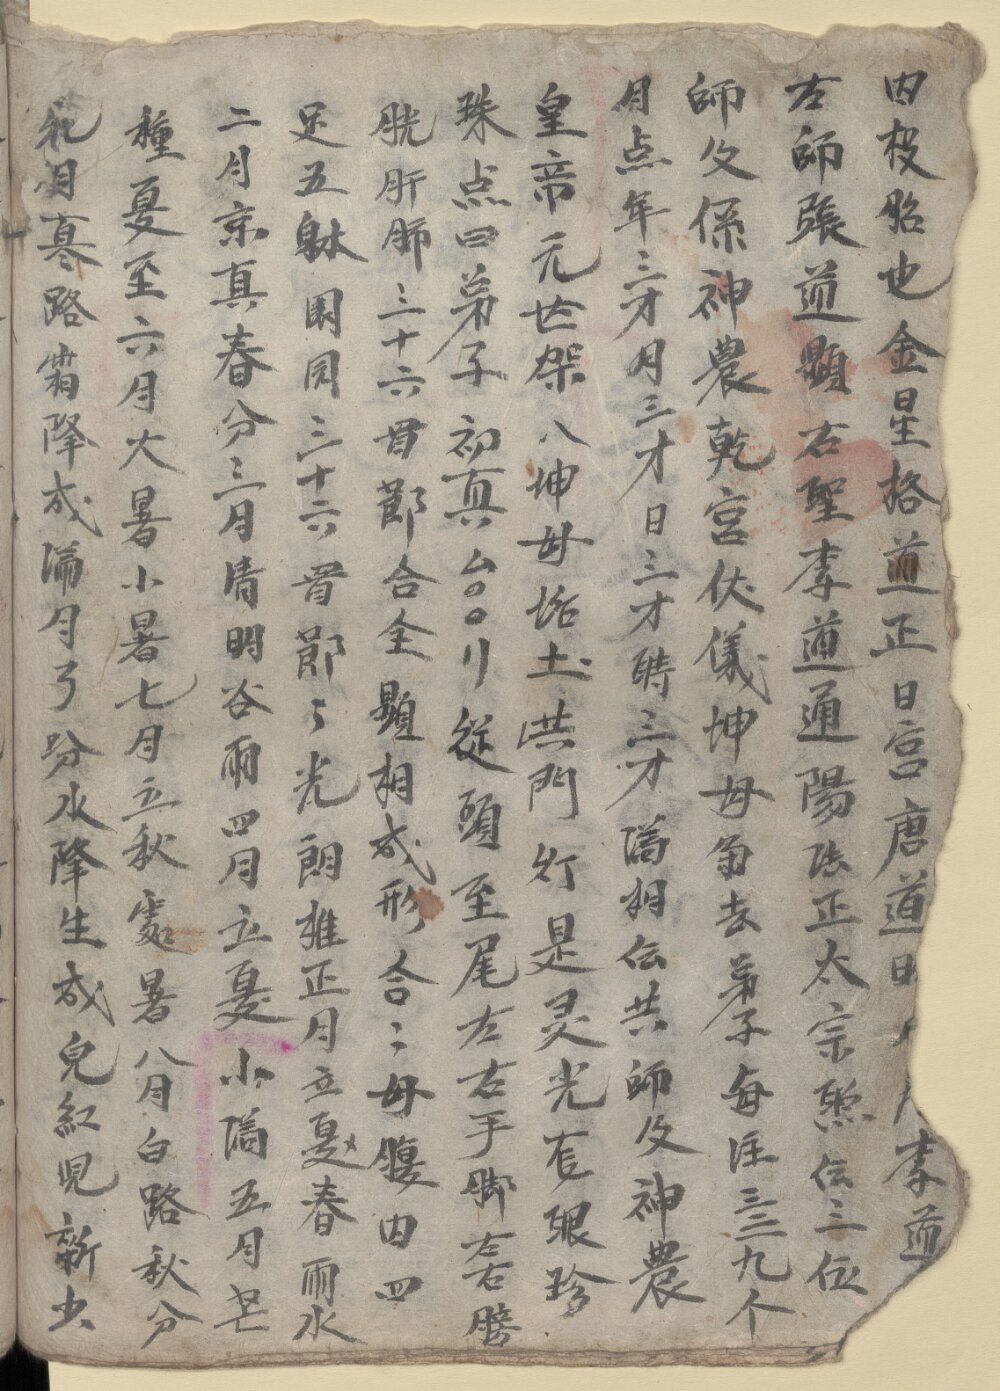 内投胎也金星格道正日宫唐道李道
左師張道顕右聖李道通陽法正太宗熈伝三位
師父係神農乾宫伏儀坤母去弟子每注三三九个
月点年三才月三才日三才時三才满相伝共師父神農
皇帝元世架八坤母垢土共門灯是灵光眼珍
珠点曰弟子初真厶〇〇刂從頭至尾左右手脚左右膀
胱肝肺三十六骨節合全顕相成形合〻母腹内四
足五躰園同三十六骨節〻光朗推正月立夏春雨水
二月京真春分三月清明谷雨四月立夏小满五月芒
種夏至六月大暑小暑七月立秋處暑八月白路秋分
九月寒路霜降成满月弓分水降生成兒紅児新出